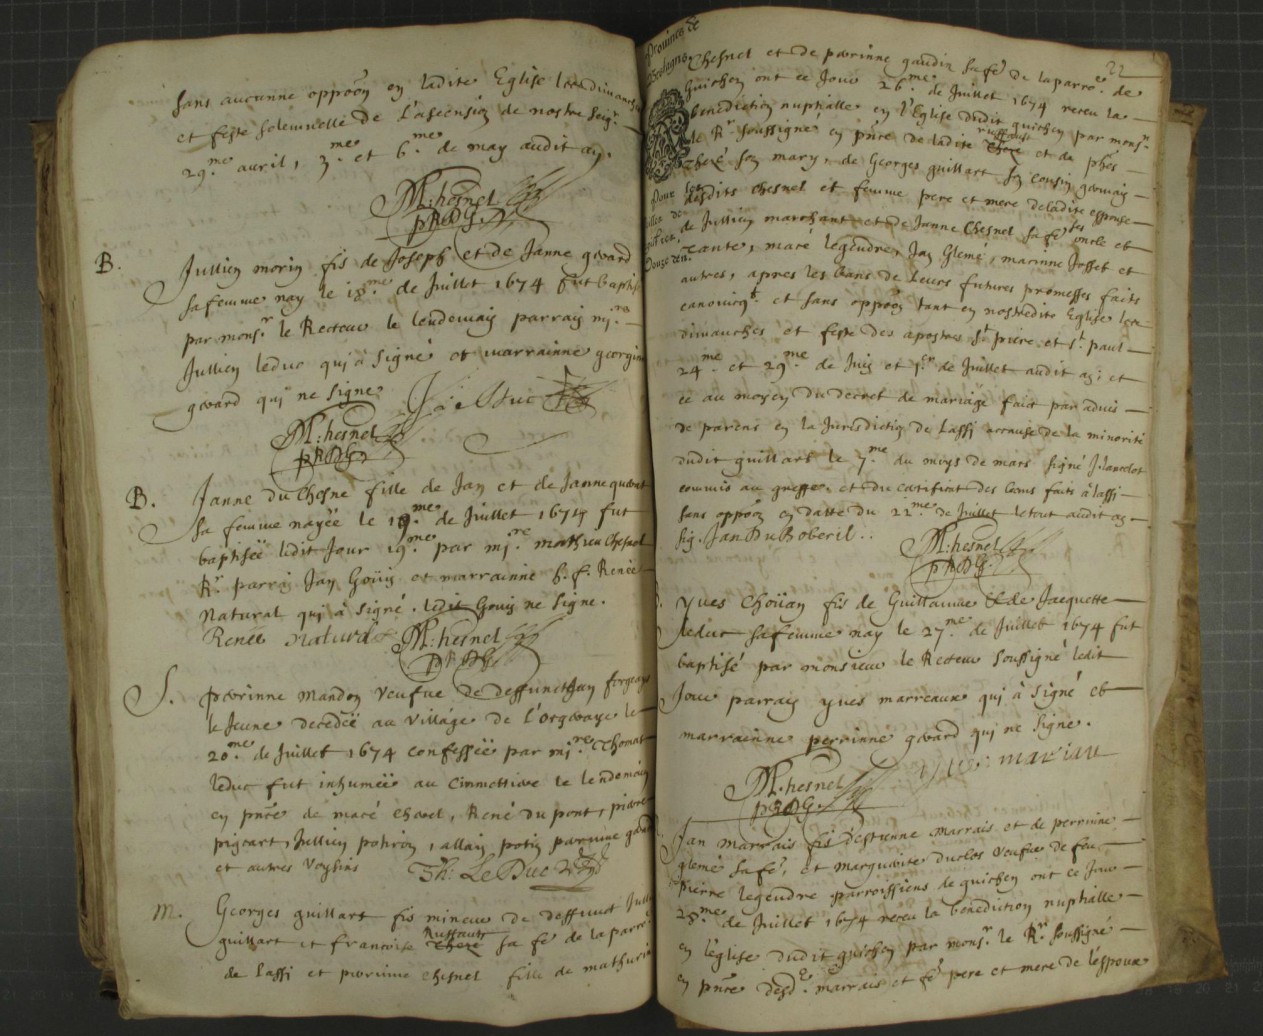 sans aucunne oppoõn en ladite Eglise les dimanches
et feste solemnelle de l'asension de nostre seigr.
29.me auril, 3.me et 6.me de may audit an.
M: hesnel
B.
Jullien morin fis de Joseph et de Janne gerard
sa femme nay le 18.me de Juillet 1674 fut baptisé
par mons.r le Recteur le lendemain parrain m.re
Jullien leduc qui à signé et marrainne georgine
gerard qui ne signe
J: le Duc
M: hesnel
B.
Janne du Chesne fille de Jan et de Janne
sa femme nayée le 19.me de Juillet 1674 fut
baptiseë ledit Jour 19.me par m.re mathieu Chesnel
R.r parrain Jan Goüin et marrainne h. f. Renée
Natural qui à signé. ledit Gouin ne signe.
Renee Natural M: hesnel
S.
perinne Mandon veufue de deffunct Jan
le Jeune decedeë au village de l'orgeraye le
20.me de Juillet 1674 confesseë par m.re Thomas
leduc fut inhumeë au Cimmettiere le lendemain
en pñce de macé chevel, René du pont, pierre
Jullien pohron, allain potin perinne
et autres voysins Th: Le Duc
M.
Georges guillart fis mineur de deffunct Jull
Ruffault
guillart et francoise sa fẽ de la parr
de Lassi et perinne chesnel fille de mathurin
22
Prouince de
Bretagne
Chesnel et de perinne gaudin sa fẽ de la parroe. de
Guichen ont ce Jour 26.me de Juillet 1674 receu la
benediction nuptialle en l'Eglise dudit guichen par mons.r
ruffault
le R.r soussigné en pñce de ladite et de
son mary, de Georges guillart son cousin germain
desdits chesnel et femme pere et mere de ladite espouse
de Jullien marchant et de Janne Chesnel sa fẽ ses oncle et
tante, macé legendre, Jan Glemé, marinne Josset et
autres, apres les bans de leurs futures promesses faits
canonicqt. et sans oppoõn tant en nostredite Eglise les
dimanches et feste des apostres st. piere et st. paul
24.me et 29.me de Juin et de Juillet audit an; et
ce au moyen du decret de mariage fait par aduis
de parens en la Jurisdiction de Lassi accause de la minorité
dudit guillart le 7.me du moys de mars signé J. lancelot
commis au greffe, et du certificat des bans faits à lassi
sans oppoõn en datte du 22.me de Juillet le tout audit an
sig. Jan Du Boberil..
M: hesnel
yves Choüan fis de Guillaume et de Jacquette
leduc sa femme nay le 27.me de Juillet 1674 fut
baptisé par monsieur le Recteur soussigné ledit
Jour parrain yves marreaux qui à signé et
marrainne perinne gerard qui ne signe.
M: hesnel
Jan marrais fis d'estienne marrais et de perrinne
glemé sa fẽ, et marguerite duclos veufue de feu
Pierre legendre parroissiens de guichen ont ce Jour
28.me de Juillet 1674 receu la benediction nuptialle
en l'eglise dudit guichen par mons.r le R.r soussigné
en pñce desd. marrais et fẽ pere et mere de l'espoux